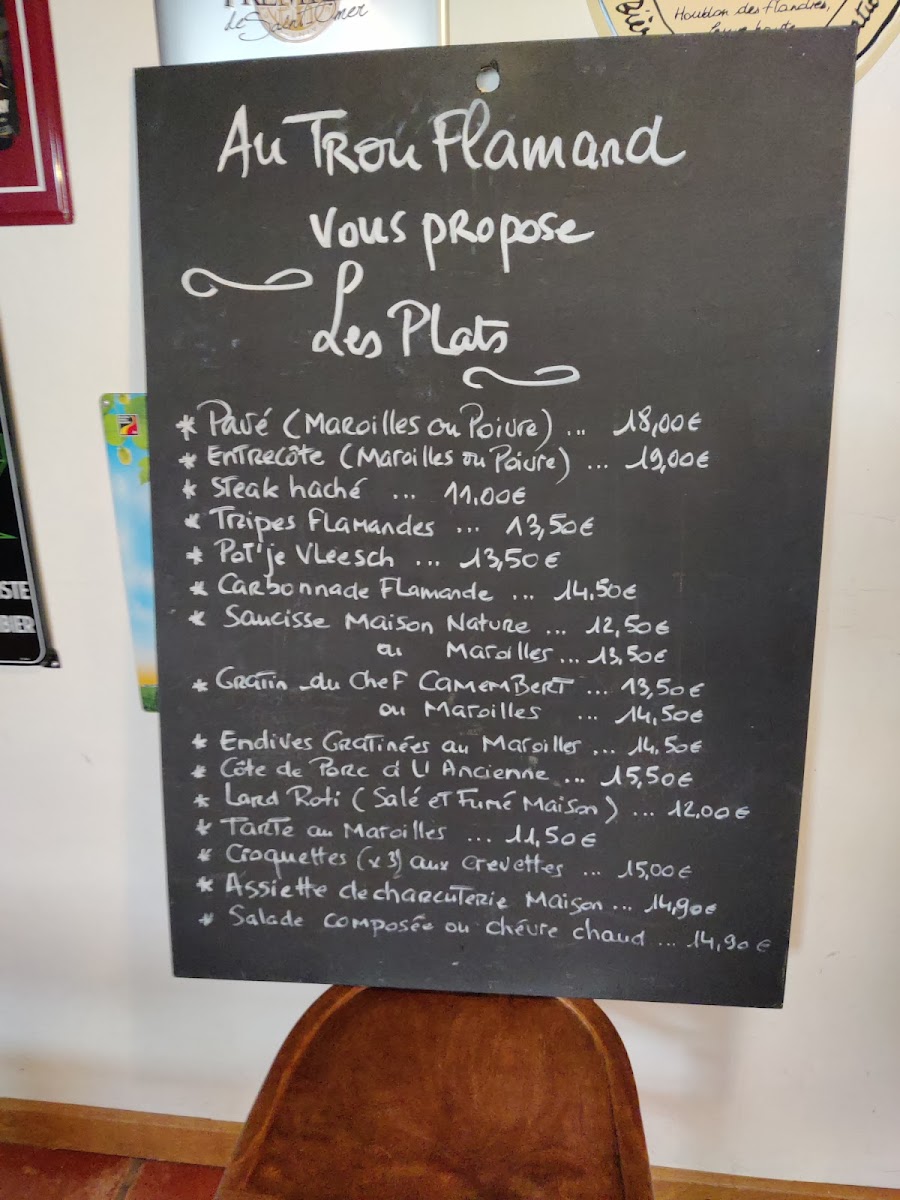 PREMIUM
de Saint Omer
Houblon des Flandres,
Au Trou Flamand
vous propose
Les Plats
* Pavé (Maroilles ou Poivre) ... 18,00€
* Entrecôte (Maroilles ou Poivre) ... 19,00€
* Steak haché ... 11,00€
* Tripes Flamandes ... 13,50€
* Pot'je Vleesch ... 13,50€
* Carbonnade Flamande ... 14,50€
* Saucisse Maison Nature ... 12,50€
ou Maroilles ... 13,50€
* Gratin du Chef Camembert ... 13,50€
ou Maroilles ... 14,50€
* Endives Gratinées au Maroilles ... 14,50€
* Côte de Porc à L'Ancienne ... 15,50€
* Lard Roti (Salé et Fumé Maison) ... 12,00€
* Tarte au Maroilles ... 11,50€
* Croquettes (x3) aux crevettes ... 15,00€
* Assiette de charcuterie Maison ... 14,90€
* Salade composée ou chévre chaud ... 14,90€
STE
BIER